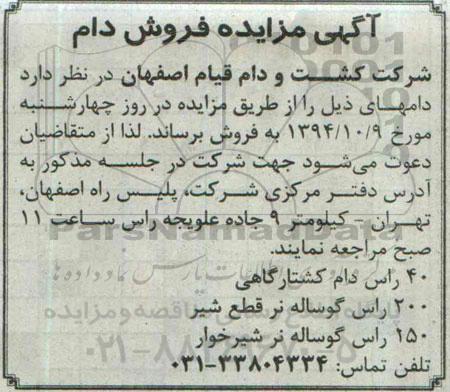 آگهی مزایده فروش دام
شرکت کشت و دام قیام اصفهان در نظر دارد
دامهای ذیل را از طریق مزایده در روز چهارشنبه
مورخ ۱۳۹۴/۱۰/۹ به فروش برساند. لذا از متقاضیان
دعوت می‌شود جهت شرکت در جلسه مذکور به
آدرس دفتر مرکزی شرکت، پلیس راه اصفهان،
تهران - کیلومتر ۹ جاده علویجه راس ساعت ۱۱
صبح مراجعه نمایند.
۴۰ راس دام کشتارگاهی
۲۰۰ راس گوساله نر قطع شیر
۱۵۰ راس گوساله نر شیرخوار
تلفن تماس: ۳۳۸۰۴۳۳۴-۰۳۱
ParsNamadData